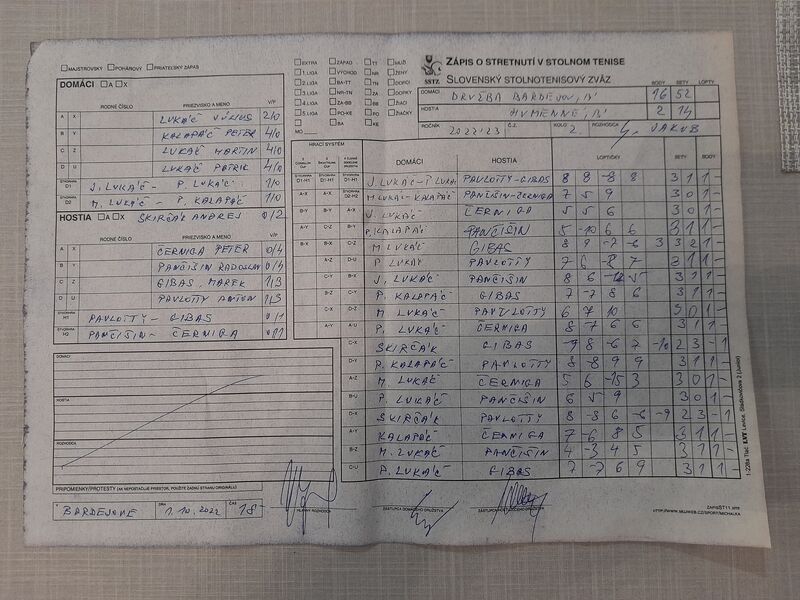 MAJSTROVSKÝ POHÁROVÝ PRIATEĽSKÝ ZÁPAS
DOMÁCI A X
RODNÉ ČÍSLO PRIEZVISKO A MENO V/P
A X LUKÁČ JÚLIUS 2/0
B Y KALAPÁČ PETER 4/0
C Z LUKÁČ MARTIN 4/0
D U LUKÁČ PATRIK 4/0
ŠTVORHRA D1 J. LUKÁČ - P. LUKÁČ 1/0
ŠTVORHRA D2 M. LUKÁČ - P. KALAPÁČ 1/0
HOSTIA A X SKIRČÁK ANDREJ 0/2
RODNÉ ČÍSLO PRIEZVISKO A MENO V/P
A X ČERNIGA PETER 0/4
B Y PANČIŠIN RADOSLAV 0/4
C Z GIBAS MAREK 1/3
D U PAVLOTTY ANTON 1/3
ŠTVORHRA H1 PAVLOTTY - GIBAS 0/1
ŠTVORHRA H2 PANČIŠIN - ČERNIGA 0/1
DOMÁCI
HOSTIA
ROZHODCA
PRIPOMIENKY/PROTESTY (AK NEPOSTAČUJE PRIESTOR, POUŽITE ZADNÚ STRANU ORIGINÁLU)
V BARDEJOVE DŇA 1.10.2022 ČAS 18-
HLAVNÝ ROZHODCA
ZÁSTUPCA DOMÁCEHO DRUŽSTVA
ZÁSTUPCA HOSŤUJÚCEHO DRUŽSTVA
EXTRA ZÁPAD TT MUŽI
1.LIGA VÝCHOD NR ŽENY
2.LIGA BA-TT ZA DORCI
3.LIGA NR-TN TN DORKY
4.LIGA ZA-BB BB ŽIACI
5.LIGA PO-KE PO ŽIAČKY
BA KE
MO
SSTZ
ZÁPIS O STRETNUTÍ V STOLNOM TENISE
SLOVENSKÝ STOLNOTENISOVÝ ZVÄZ
BODY SETY LOPTY
DOMÁCI DRUŽBA BARDEJOV "B" 16 52
HOSTIA HUMENNÉ "B" 2 14
ROČNÍK 2022/23 Č.Z. KOLO 2. ROZHODCA JAKUB
HRACÍ SYSTÉM
DOMÁCI HOSTIA LOPTIČKY SETY BODY
J. LUKÁČ - P. LUKÁČ PAVLOTTY - GIBAS 8 8 -8 8 3 1 1 -
M. LUKÁČ - KALAPÁČ PANČIŠIN - ČERNIGA 7 5 9 3 0 1 -
J. LUKÁČ ČERNIGA 5 5 6 3 0 1 -
P. KALAPÁČ PANČIŠIN 5 -10 6 6 3 1 1 -
M. LUKÁČ GIBAS 8 9 -7 -6 3 3 2 1 -
P. LUKÁČ PAVLOTTY 7 6 -8 7 3 1 1 -
J. LUKÁČ PANČIŠIN 8 6 -12 5 3 1 1 -
P. KALAPÁČ GIBAS 7 -7 8 6 3 1 1 -
M. LUKÁČ PAVLOTTY 6 7 10 3 0 1 -
P. LUKÁČ ČERNIGA 8 -7 6 6 3 1 1 -
SKIRČÁK GIBAS -9 8 -6 7 -10 2 3 - 1
P. KALAPÁČ PAVLOTTY 8 -8 9 9 3 1 1 -
M. LUKÁČ ČERNIGA 5 6 -15 3 3 1 1 -
P. LUKÁČ PANČIŠIN 6 5 9 3 0 1 -
SKIRČÁK PAVLOTTY 8 -8 6 -6 -9 2 3 - 1
KALAPÁČ ČERNIGA 7 -6 8 5 3 1 1 -
M. LUKÁČ PANČIŠIN 4 -3 4 5 3 1 1 -
P. LUKÁČ GIBAS 7 -7 6 9 3 1 1 -
ZAPISST11.XFR